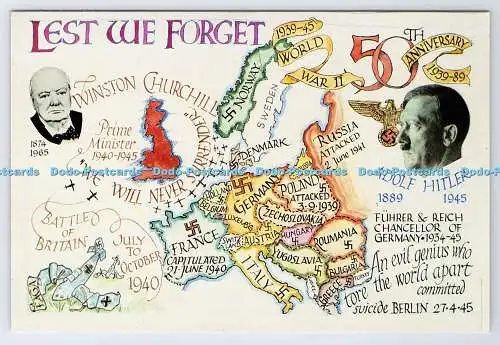 LEST WE FORGET
1939-45
WORLD
WAR II
50TH
ANNIVERSARY
1939-89
1874
1965
WINSTON CHURCHILL
Prime
Minister
1940-1945
WE WILL NEVER SURRENDER
NORWAY
SWEDEN
DENMARK
RUSSIA
ATTACKED
2 June 1941
ADOLF HITLER
1889 1945
FÜHRER & REICH
CHANCELLOR OF
GERMANY · 1934-45
An evil genius who
tore the world apart
committed
suicide BERLIN 27·4·45
HOLLAND
BELGIUM
LUXEMBOURG
GERMANY
POLAND
ATTACKED
3·9·1939
CZECHOSLOVAKIA
FRANCE
CAPITULATED
21·JUNE 1940
SWITZ
AUSTRIA
HUNGARY
ROUMANIA
YUGOSLAVIA
BULGARIA
ITALY
GREECE
TURKEY
BATTLE OF
BRITAIN
JULY
TO
OCTOBER
1940
Dodo-Postcards Dodo-Postcards Dodo-Postcards